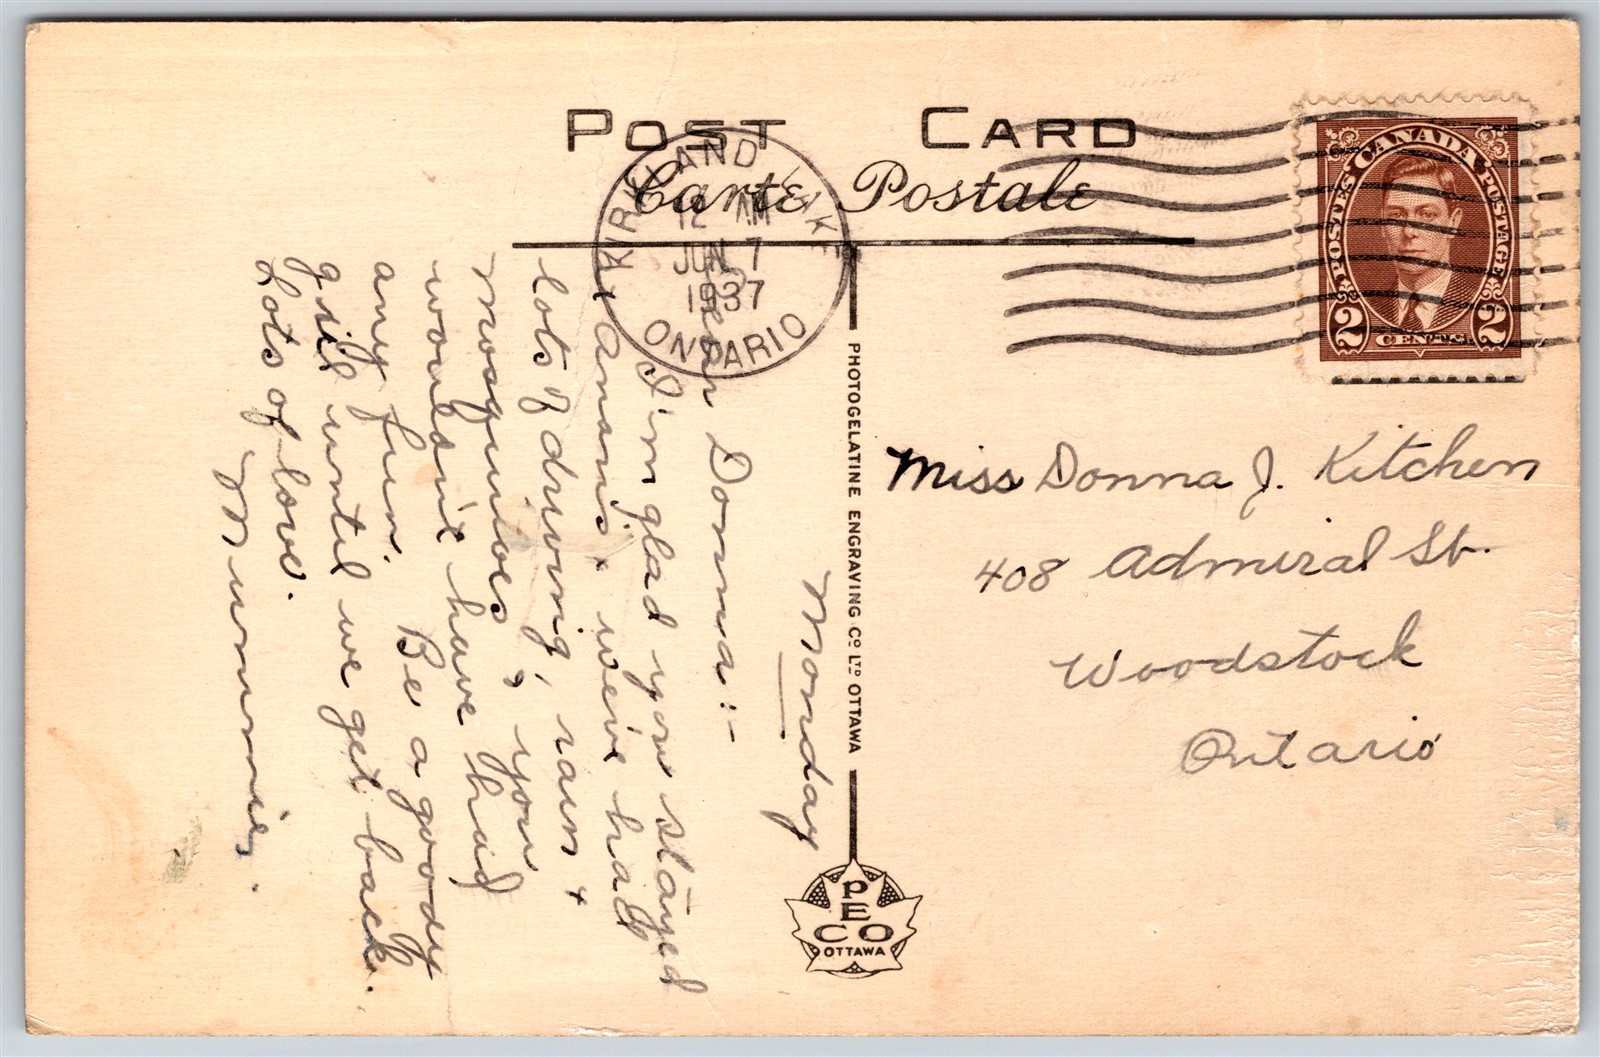 POST CARD
Carte Postale
KIRKLAND LAKE
12 AM
JUN 7
1937
ONTARIO
CANADA
POSTES POSTAGE
2 CENTS 2
PHOTOGELATINE ENGRAVING CO LTD OTTAWA
PECO
OTTAWA
Miss Donna J. Kitchen
408 Admiral St.
Woodstock
Ontario
Monday
Dear Donna:-
I'm glad you stayed
at we've had
lots of driving, rain +
mosquitoes, & you
wouldn't have had
any fun. Be a goody
girl until we get back.
Lots of love.
Mummie.